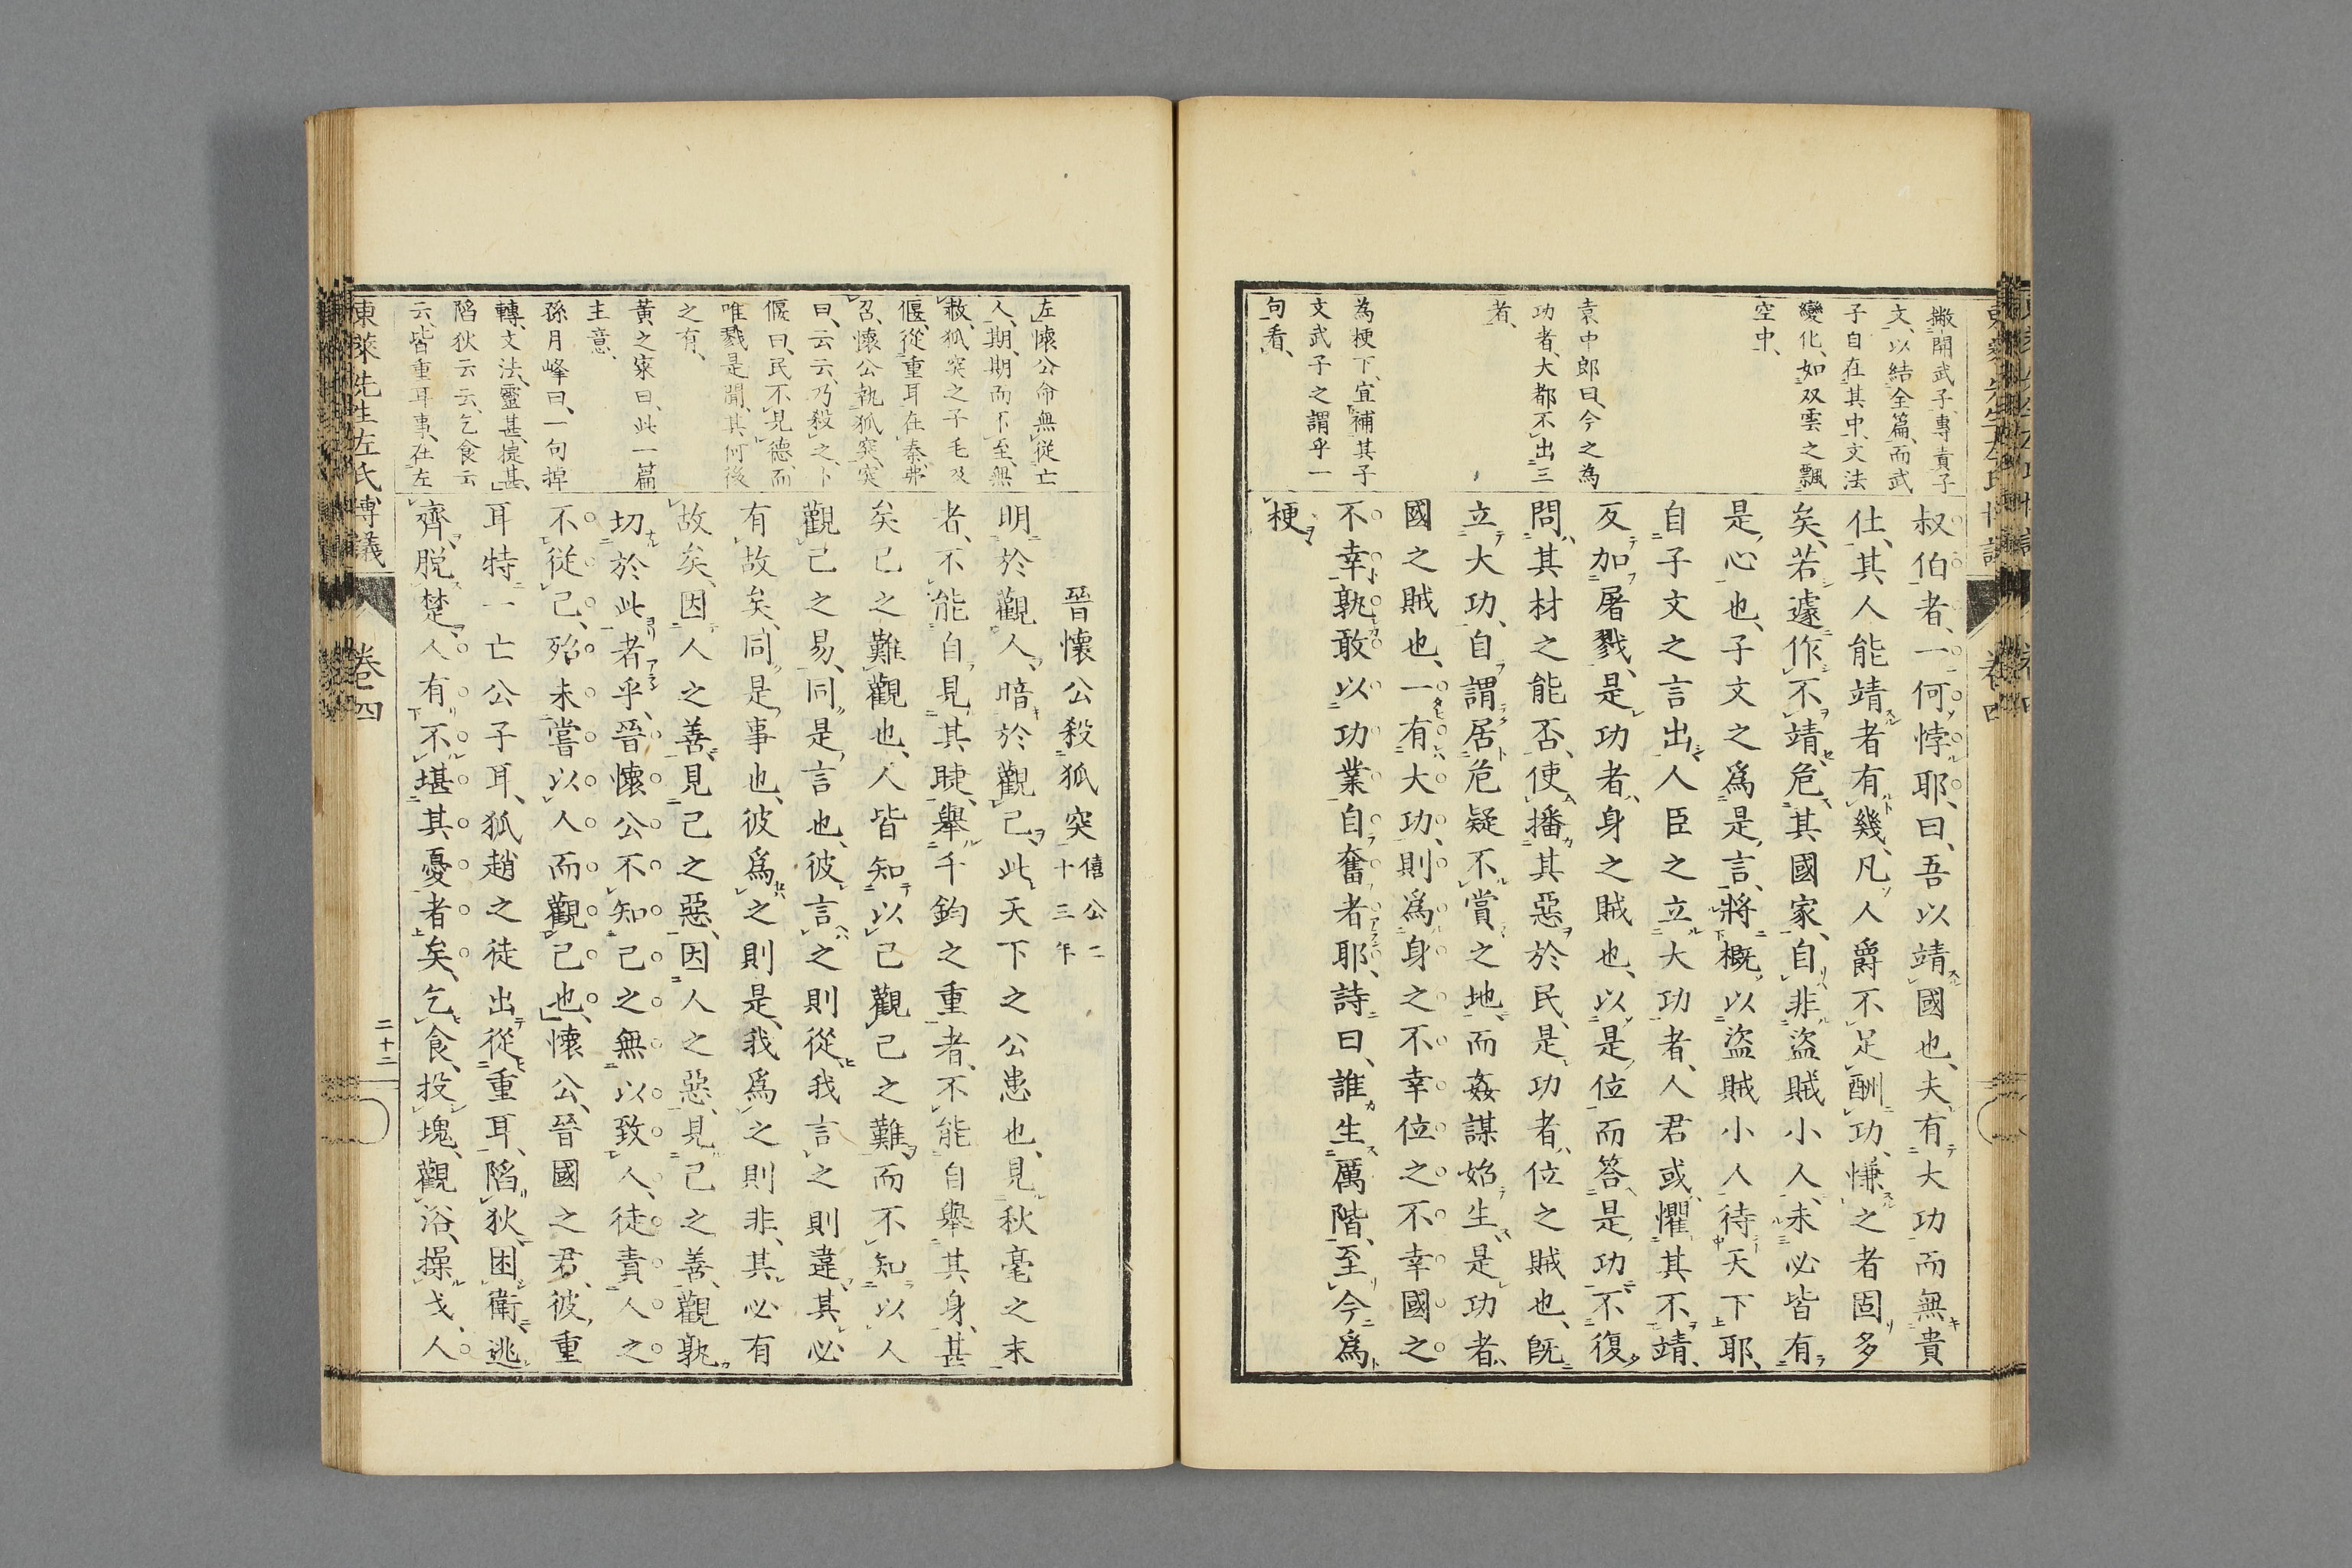 撇開武子、專責子
文、以結全篇、而武
子自在其中、文法
變化、如双雲之飄
空中、
袁中郎曰、今之為
功者、大都不出三
者、
為梗下、宜補其子
文武子之謂乎一
句看、
叔伯者、一何悖耶、曰、吾以靖國也、夫有大功而無貴
仕、其人能靖者有幾、凡人爵不足酬功、慊之者固多
矣、若遽作不靖、危其國家、自非盜賊小人、未必皆有
是心也、子文之爲是言、將概以盜賊小人待天下耶、
自子文之言出、人臣之立大功者、人君或懼其不靖、
反加屠戮、是功者、身之賊也、以是位而答是功、不復
問其材之能否、使播其惡於民、是功者、位之賊也、旣
立大功、自謂居危疑不賞之地、而姦謀始生、是功者、
國之賊也、一有大功、則爲身之不幸位之不幸國之
不幸、孰敢以功業自奮者耶、詩曰、誰生厲階、至今爲
梗、
左懷公命無從亡
人、期、期而不至、無
赦、狐突之子毛及
偃、從重耳在秦、弗
召、懷公執狐突、突
曰、云云、乃殺之、卜
偃曰、民不見德、而
唯戮是聞、其何後
之有、
黃之寀曰、此一篇
主意、
孫月峰曰、一句掉
轉、文法靈甚、捷甚、
陷狄云云、乞食云
云、皆重耳事、在左
晉懷公殺狐突 僖公二十三年
明於觀人、暗於觀己、此天下之公患也、見秋毫之末
者、不能自見其睫、舉千鈞之重者、不能自舉其身、甚
矣己之難觀也、人皆知以己觀己之難、而不知以人
觀己之易、同是言也、彼言之則從、我言之則違、其必
有故矣、同是事也、彼爲之則是、我爲之則非、其必有
故矣、因人之善、見己之惡、因人之惡、見己之善、觀孰
切於此者乎、晉懷公不知己之無以致人、徒責人之
不從己、殆未嘗以人而觀己也、懷公、晉國之君、彼重
耳特一亡公子耳、狐趙之徒出從重耳、陷狄、困衛、逃
齊、脱楚、人有不堪其憂者矣、乞食、投塊、觀浴、操戈、人
東萊先生左氏博議 卷四 二十二